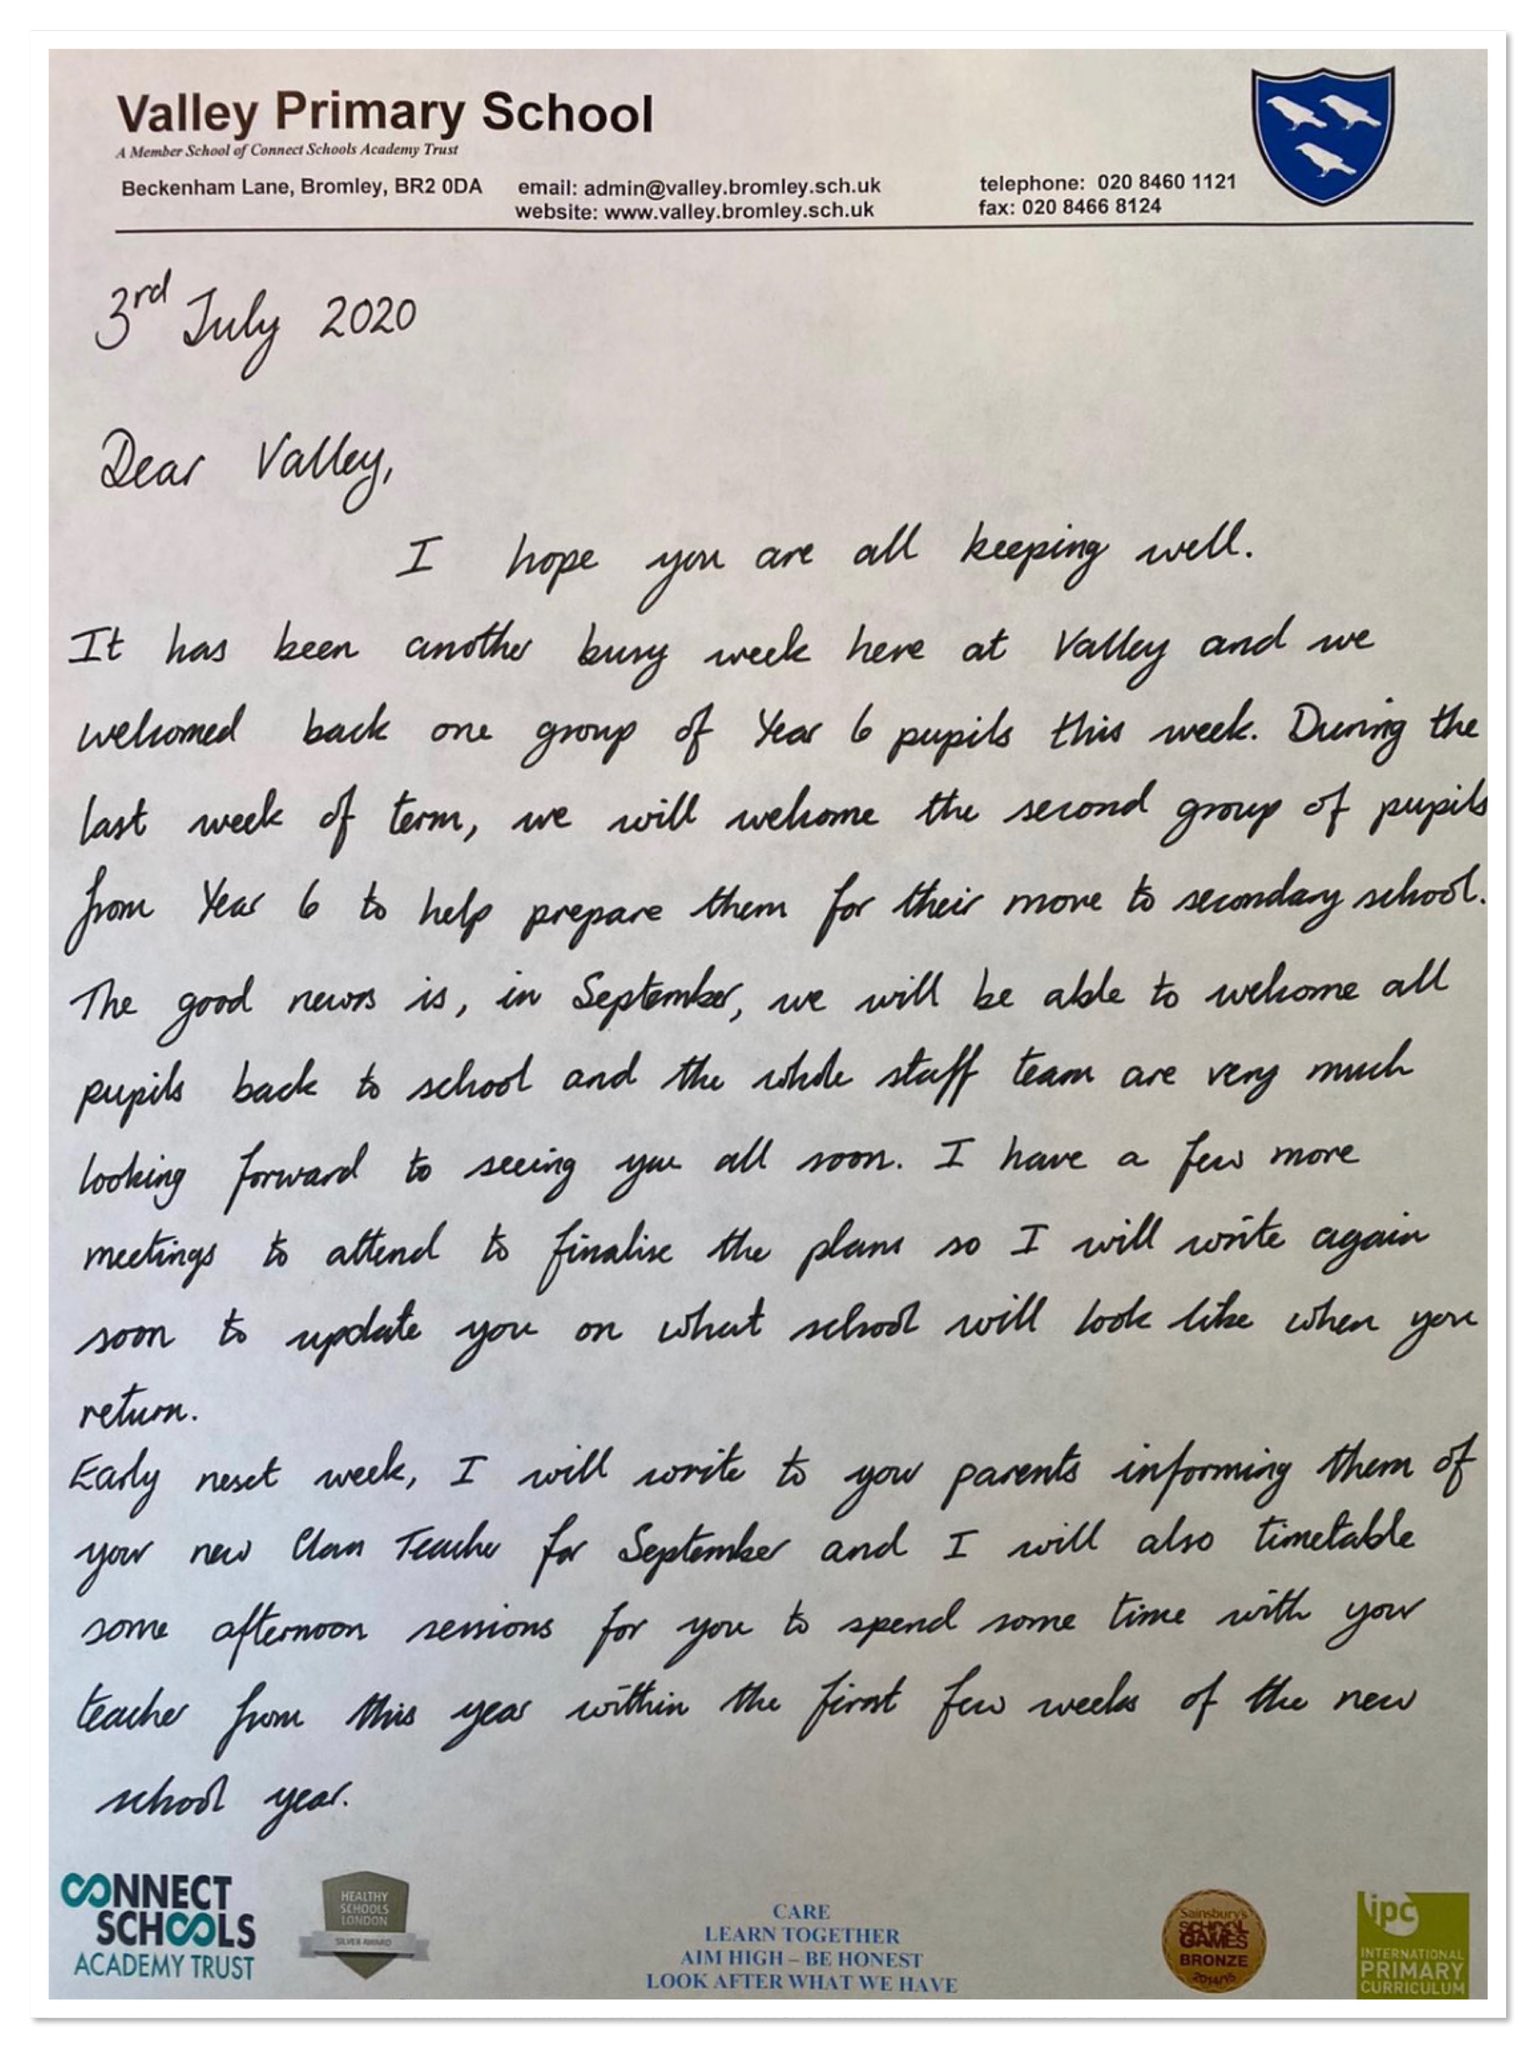 Valley Primary School
A Member School of Connect Schools Academy Trust
Beckenham Lane, Bromley, BR2 0DA email: admin@valley.bromley.sch.uk telephone: 020 8460 1121
website: www.valley.bromley.sch.uk fax: 020 8466 8124
3rd July 2020
Dear Valley,
I hope you are all keeping well.
It has been another busy week here at Valley and we
welcomed back one group of Year 6 pupils this week. During the
last week of term, we will welcome the second group of pupils
from Year 6 to help prepare them for their move to secondary school.
The good news is, in September, we will be able to welcome all
pupils back to school and the whole staff team are very much
looking forward to seeing you all soon. I have a few more
meetings to attend to finalise the plans so I will write again
soon to update you on what school will look like when you
return.
Early next week, I will write to your parents informing them of
your new Class Teacher for September and I will also timetable
some afternoon sessions for you to spend some time with your
teacher from this year within the first few weeks of the new
school year.
CONNECT
SCHOOLS
ACADEMY TRUST
HEALTHY
SCHOOLS
LONDON
SILVER AWARD
CARE
LEARN TOGETHER
AIM HIGH – BE HONEST
LOOK AFTER WHAT WE HAVE
Sainsbury's
SCHOOL
GAMES
BRONZE
2014/15
ipc
INTERNATIONAL
PRIMARY
CURRICULUM